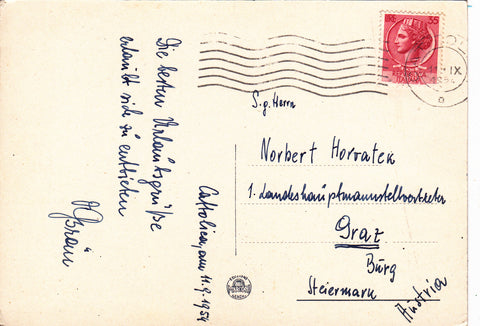 Die besten Urlaubsgrüße
erlaubt sich zu entbieten
Bräu
Cattolica, am 11.9.1954
S.g. Herrn
Norbert Horvatek
1. Landeshauptmannstellvertreter
Graz
Burg
Steiermark
Austria
LIRE 35
IX